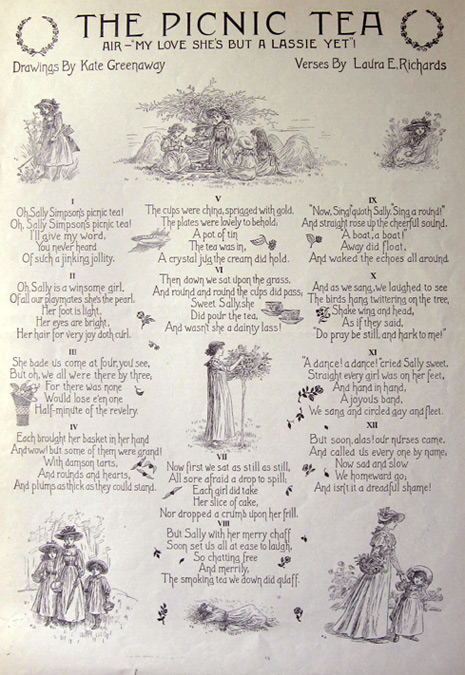 THE PICNIC TEA
AIR-"MY LOVE SHE'S BUT A LASSIE YET"!
Drawings By Kate Greenaway
Verses By Laura E. Richards
I
Oh, Sally Simpson's picnic tea!
Oh, Sally Simpson's picnic tea!
I'll give my word,
You never heard
Of such a jinking jollity.
II
Oh, Sally is a winsome girl,
Of all our playmates she's the pearl.
Her foot is light,
Her eyes are bright,
Her hair for very joy doth curl.
III
She bade us come at four, you see,
But oh, we all were there by three,
For there was none
Would lose e'en one
Half-minute of the revelry.
IV
Each brought her basket in her hand
And wow! but some of them were grand!
With damson tarts,
And rounds and hearts,
And plums as thick as they could stand.
V
The cups were china, sprigged with gold.
The plates were lovely to behold;
A pot of tin
The tea was in,
A crystal jug the cream did hold.
VI
Then down we sat upon the grass,
And round and round the cups did pass;
Sweet Sally, she
Did pour the tea,
And wasn't she a dainty lass!
VII
Now first we sat as still as still,
All sore afraid a drop to spill;
Each girl did take
Her slice of cake,
Nor dropped a crumb upon her frill.
VIII
But Sally with her merry chaff
Soon set us all at ease to laugh,
So chatting free
And merrily,
The smoking tea we down did quaff.
IX
"Now, Sing!" quoth Sally. "Sing a round!"
And straight rose up the cheerful sound.
A boat, a boat!
Away did float,
And waked the echoes all around.
X
And as we sang, we laughed to see
The birds hang twittering on the tree,
Shake wing and head,
As if they said,
"Do pray be still, and hark to me!"
XI
"A dance! a dance!" cried Sally sweet.
Straight every girl was on her feet,
And hand in hand,
A joyous band,
We sang and circled gay and fleet.
XII
But soon, alas! our nurses came.
And called us every one by name,
Now sad and slow
We homeward go;
And isn't it a dreadful shame!